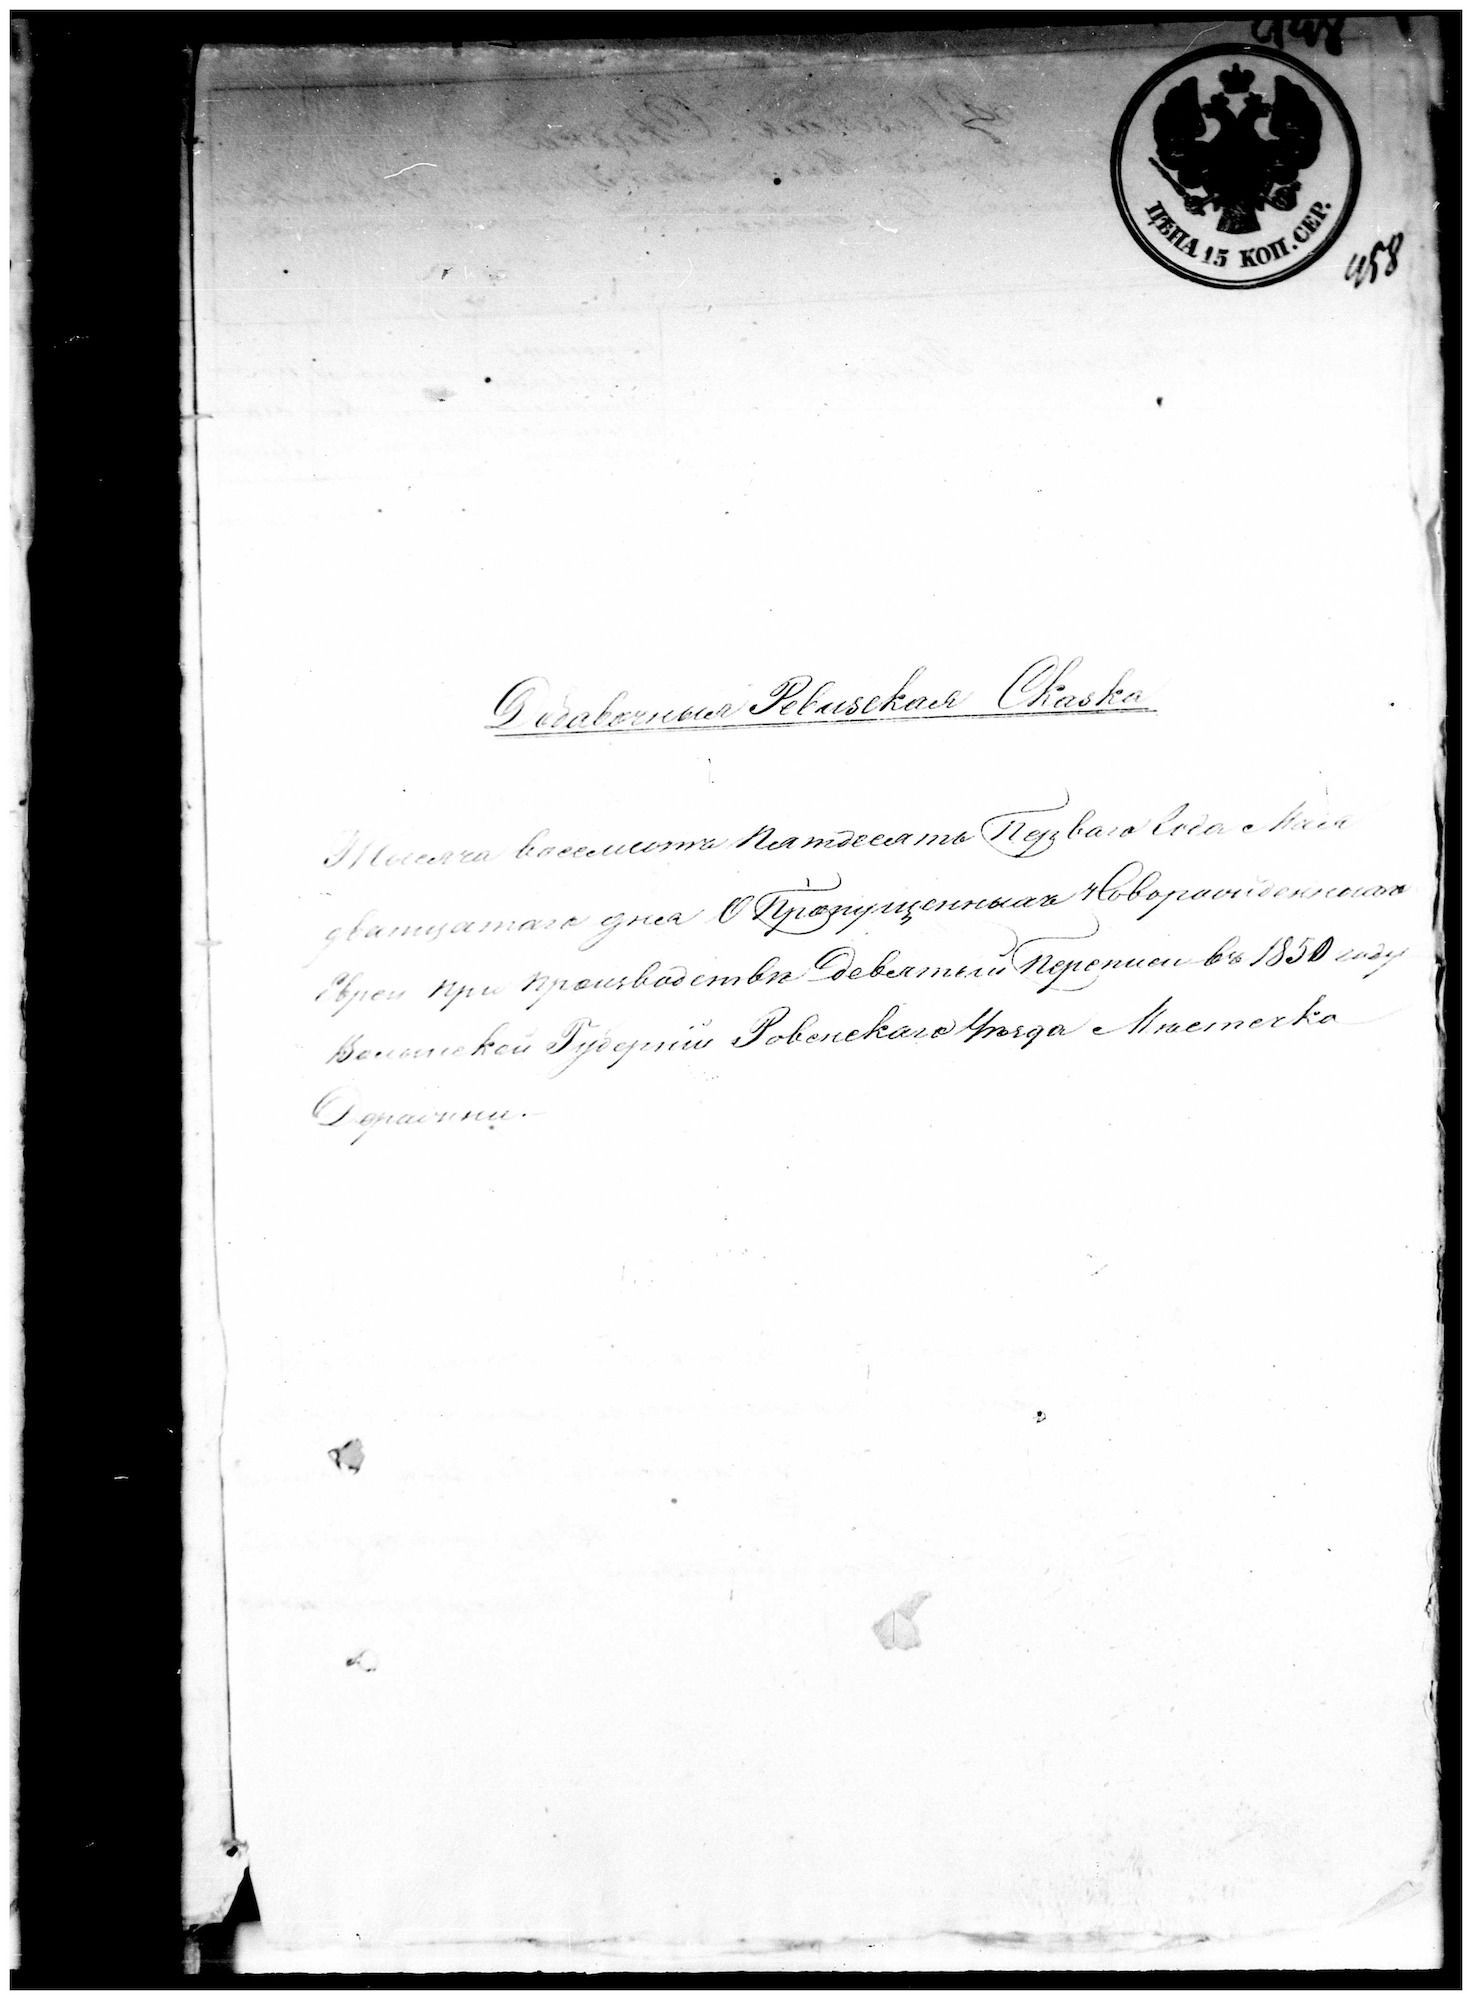 ЦѢНА 15 КОП. СЕР.
458
Добавочныя Ревизская Сказка
Тысяча восемьсотъ Пятдесятъ Перваго Года Мая
дватцатаго дня О Пропущенныхъ Новорожденныхъ
Евреи при производствѣ девятый Переписи въ 1850 году
Волынской Губерніи Ровенскаго Уѣзда Мѣстечка
Деражни.